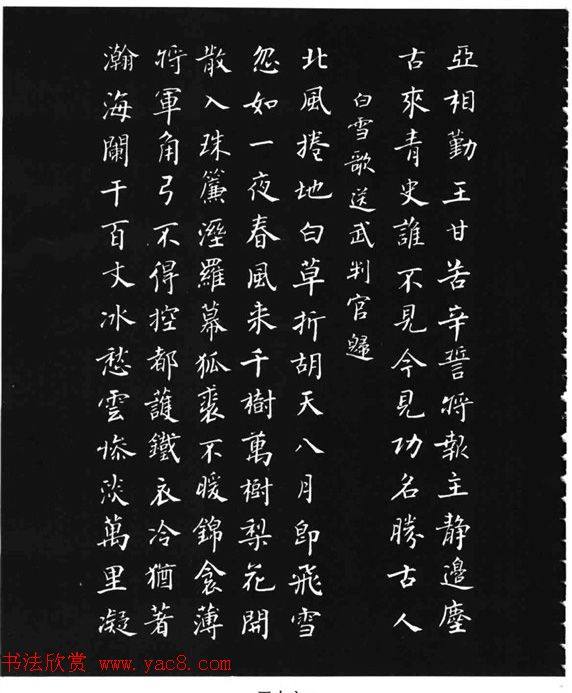 亞相勤王甘苦辛誓將報主静邊塵
古來青史誰不見今見功名勝古人
白雪歌送武判官歸
北風捲地白草折胡天八月即飛雪
忽如一夜春風来千樹萬樹梨花開
散入珠簾溼羅幕狐裘不暖錦衾薄
將軍角弓不得控都護鐵衣冷猶著
瀚海闌干百丈冰愁雲慘淡萬里凝
书法欣赏 www.yac8.com